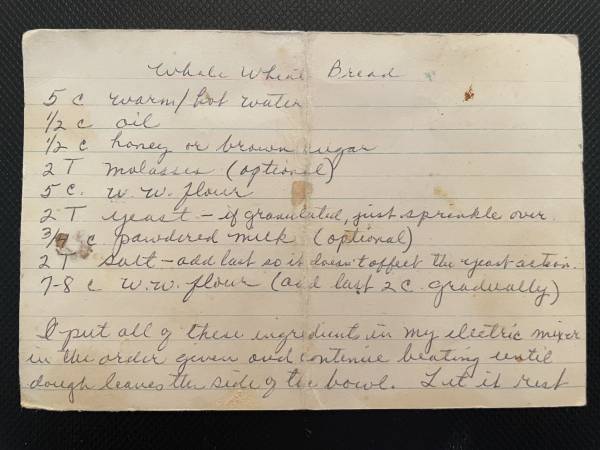 Whole Wheat Bread
5 c warm/hot water
1/2 c oil
1/2 c honey or brown sugar
2 T molasses (optional)
5 c. w.w. flour
2 T yeast - if granulated, just sprinkle over.
c powdered milk (optional)
2 T salt - add last so it doesn't affect the yeast action.
7-8 c w.w. flour (add last 2 c. gradually)
I put all of these ingredients in my electric mixer
in the order given and continue beating until
dough leaves the side of the bowl. Let it rest